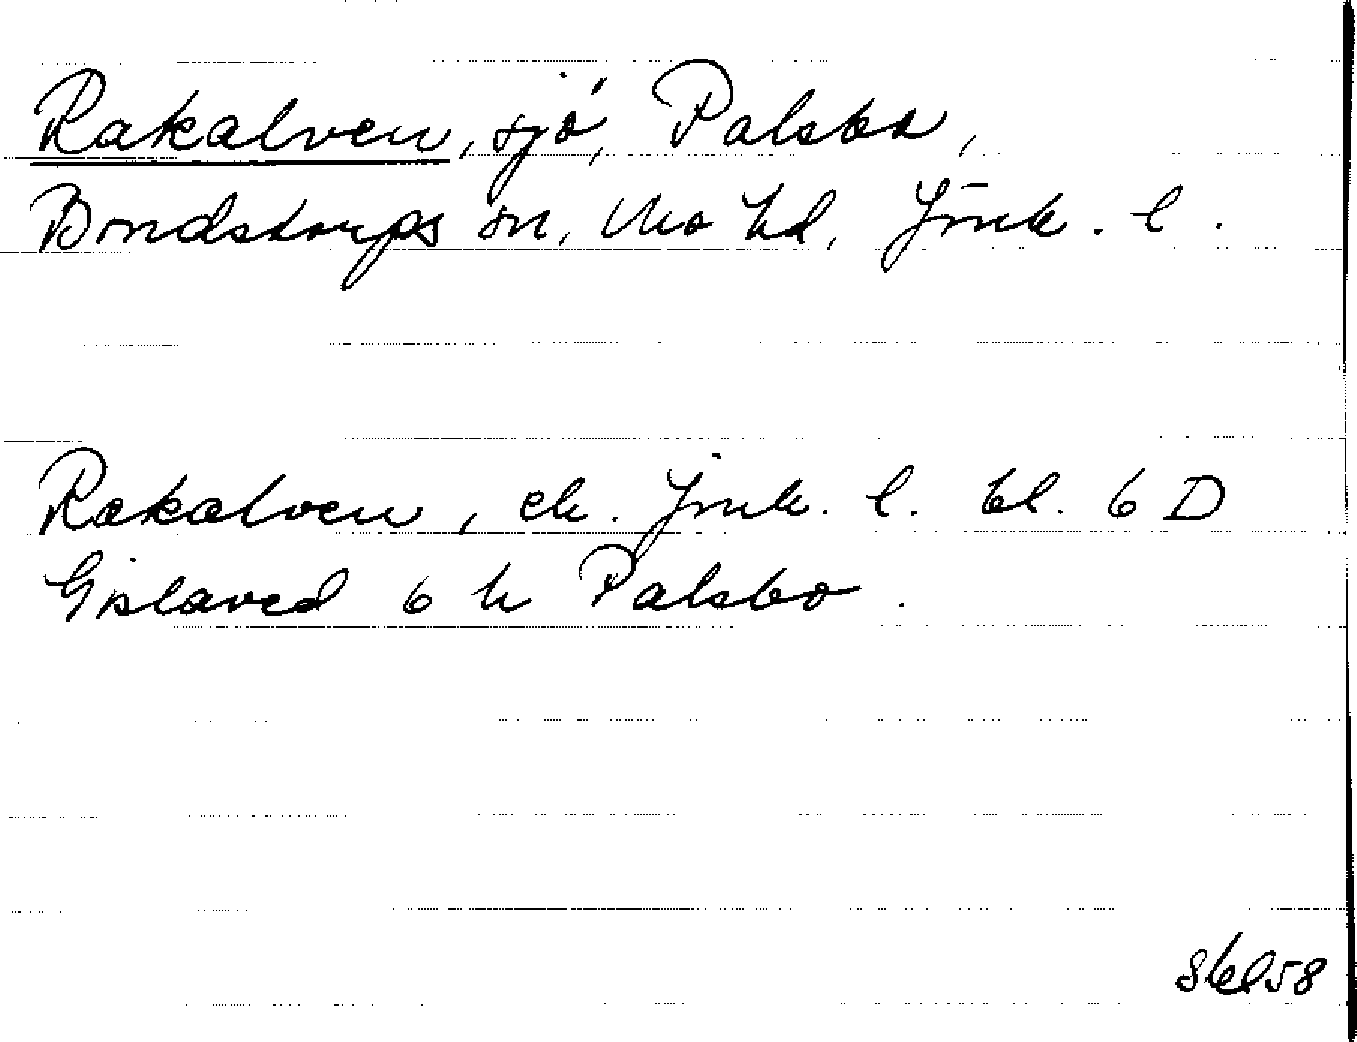 Rakalven, sjö, Palsbo,
Bondstorps sn, Mo hd, Jönk. l.
Rakalven, ek. Jönk. l. bl. 6 D
Gislaved 6 h Palsbo.